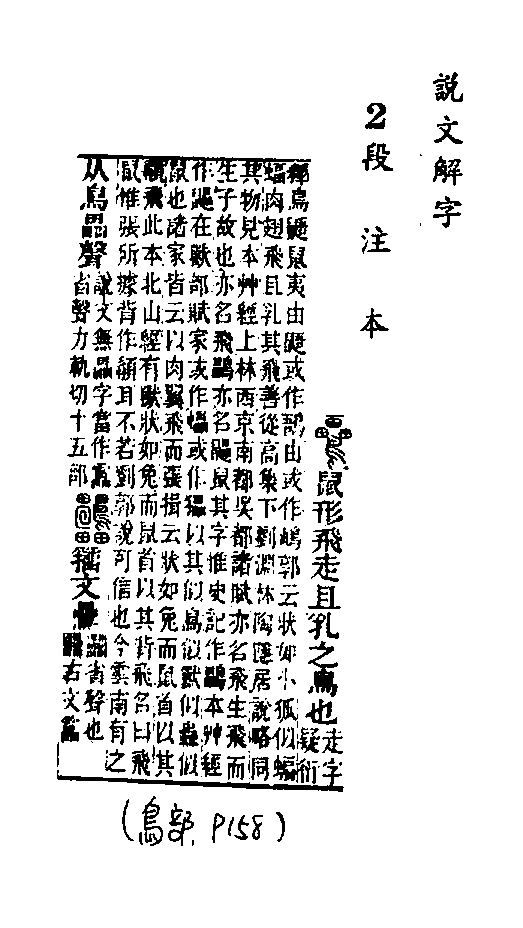 說文解字
2段注本
鼠形飛走且乳之鳥也走字
疑衍
釋鳥鼯鼠夷由鼯或作由或作郭云狀如小狐似蝙
蝠肉翅飛且乳其飛善從高集下劉淵林陶隱居說略同
其物見本艸經上林西京南都吳都諸賦亦名飛生飛而
生子故也亦名飛鸓亦名鼠其字惟史記作鸓本艸經
作在獸部賦家或作蠝或作以其似鳥似獸似蟲似
鼠也諸家皆云以肉翼飛而張揖云狀如兔而鼠首以其
飛此本北山經有獸狀如兔而鼠首以其背飛名曰飛
鼠惟張所據背作耳不若劉郭說可信也今雲南有之
从鳥畾聲說文無畾字當作靁
省聲力軌切十五部
籒文省聲也
右文
(鳥部, P158)